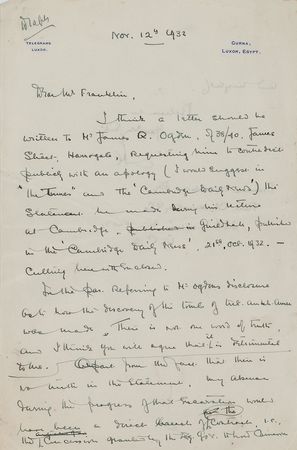 Draft
Nov. 12th 1932
TELEGRAMS
LUXOR.
GURNA,
LUXOR, EGYPT.
Dear Mr Franklin,
I think a letter should be
written to Mr James R. Ogden, of 38/40, James
Street, Harrogate, requesting him to contradict
publicly with an apology (I would suggest in
"the Times" and the "Cambridge Daily News") the
statement he made during his lecture
at Cambridge, Guildhall, published
in the 'Cambridge Daily News', 21st, Oct. 1932. –
Cutting herewith enclosed.
In the Par. Referring to Mr Ogden's disclosure
as to how the discovery of the tomb of Tut.ankh.Amen
was made, "There is not one word of truth,
and I think you will agree that it is detrimental
to me. Apart from the fact that there is
no truth in the statement, my absence
during the progress of that excavation would
have been a direct breach of the Contract, i.e.
the Concession granted by the Eg. Gov. to Lord Carnarvon